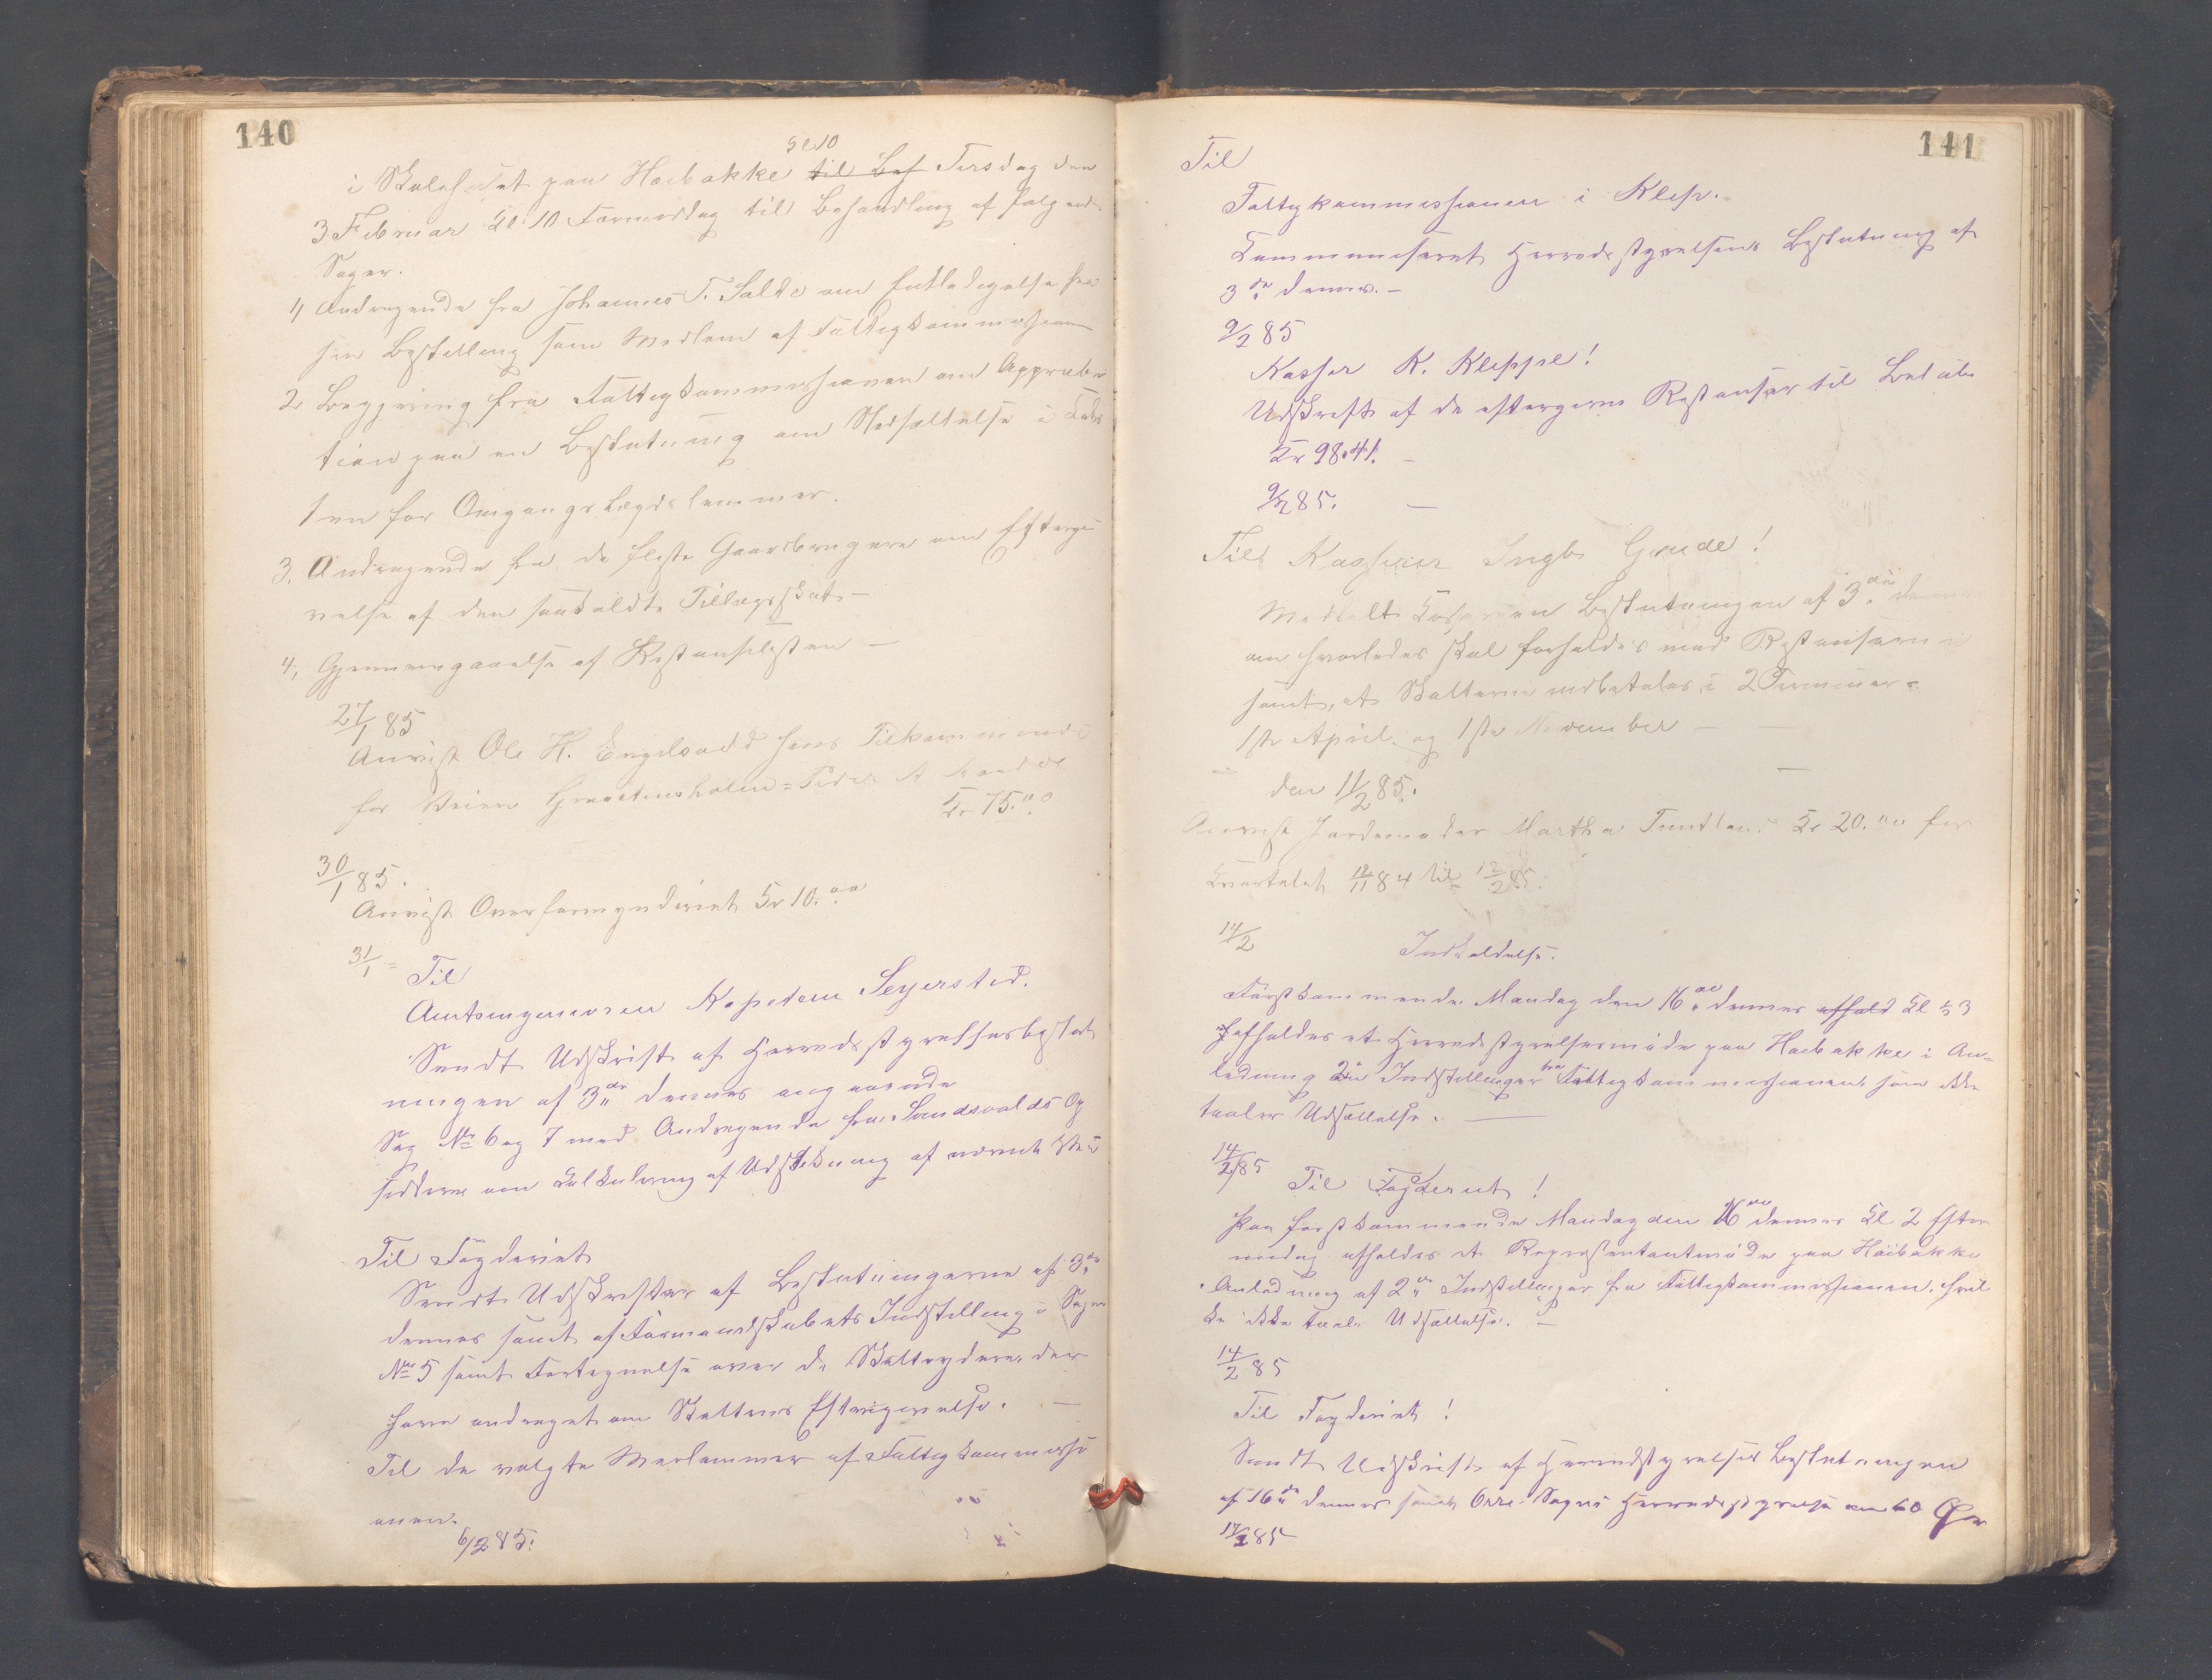 140
Kl 10
i Skolehuset paa Haabakke til Beh Tirsdag den
3 Februar Kl 10 Formiddag til Behandling af følgende
Sager.
1) Andragende fra Johannes T. Salte om Entledigelse fra
sin Bestilling som Medlem af Fattigkommissionen
2 Begjering fra Fattigkommissionen om Approba
tion paa en Beslutning om Nedsættelse i
ten for Omgangs Lægdslemmer.
3. Andragende fra de fleste Gaardbrugere om Eftergi
velse af den saakaldte Tillægsskat –
4, Gjennemgaaelse af Restanselisten –
27/1 85
Anvist Ole H. Engelsvold hans Tilkommende
for Veien
Kr 75.00
30/1 85.
Anvist Overformynderiet Kr 10.00
31/1 =
Til
Amtsingeniøren Kaptein Seyersted.
Sendt Udskrift af Herredsstyrelsesbeslut
ningen af 3de dennes angaaende
Sag No 6 og 7 med Andragende fra
om Kalkulering af Udstikning af nævnte
Til Fogderiet
Sendt Udskrifter af Beslutningerne af 3de
dennes samt af Formandskabets Indstilling i Sagen
No 5 samt Fortegnelse over de Skatteydere der
have andraget om Skattens Eftergivelse. —
Til de valgte Medlemmer af Fattigkommissi
onen.
6/2 85.
141
Til
Fattigkommissionen i Klep.
Kommuniseret Herredsstyrelsens Beslutning af
3de dennes. –
9/2 85
Kasser K. Kleppe!
Udskrift af de eftergivne Restanser til Beløb
Kr 98.41. –
9/2 85. —
Til Kasserer Ingb Grude!
Meddelt Kassereren Beslutningen af 3die dennes
om hvorledes skal forholdes med Restanserne
samt, at Skatterne indbetales i 2 Terminer.
1ste April og 1ste November —
den 11/2 85.
Anvist Jordemoder Martha Tuntland Kr 20.00 for
Kvartalet 12/11 84 til 12/2 85.
14/2
Indkaldelse.
Førstkommende Mandag den 16de dennes afhold Kl 3
afholdes et Herredsstyrelsesmøde paa Haabakke i An=
ledning 2de Indstillinger fra Fattigkommissionen, som ikke
taaler Udsættelse. —
14/2 85
Til Fogderiet!
Paa førstkommende Mandag den 16de dennes Kl 2 Efter
middag afholdes et Repræsentantmøde paa Haabakke
i Anledning af 2de Indstillinger fra Fattigkommissionen, hvil
ke ikke taaler Udsættelse. –
14/2 85
Til Fogderiet!
Sendt Udskrift af Herredsstyrelses Beslutningen
af 16de dennes samt Orre Sogns Herredsstyrelse om 60
17/2 85